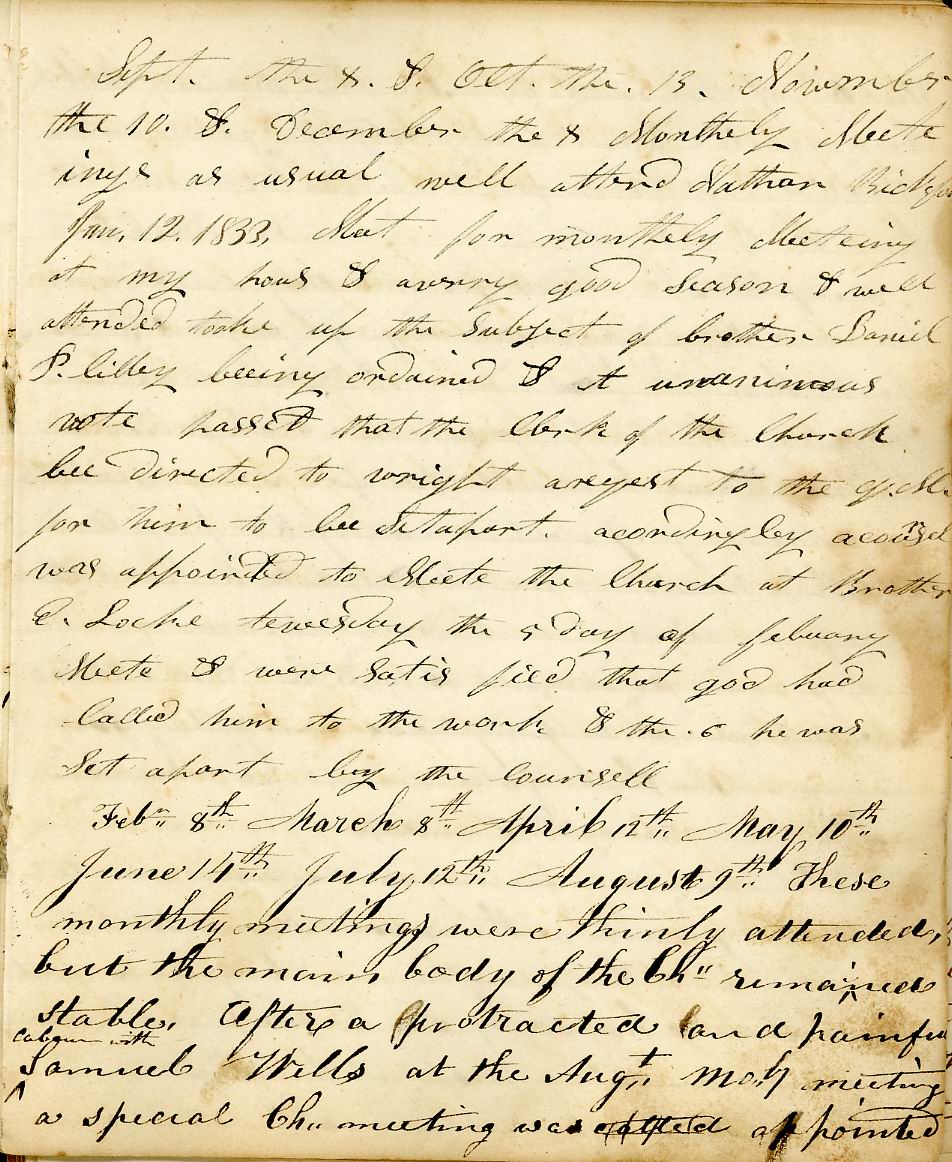 Sept. the 8. & Oct. the. 13. November
the 10. & December the 8 Monthely Meete
ings as usual well attend Nathan
Jan, 12. 1833, Meet for monthely Meeteing
at my hous & averry good Season & well
attended tooke up the Subject of brother Daniel
P. Cilley beeing ordained & A unanimous
vote passed that the Clerk of the Church
bee Directed to wright areqest to the
for him to bee Setapart. acordingley
was appointed to Meete the Church at Brother
E. Locke teuesday the 5 day of febuary
Meete & were Satis fied that god had
Called him to the work & the. 6 he was
Set apart by the Counsell
Feb.. 8th.. March 8th.. April 12th.. May, 10th..
June 14th.. July, 12th.. August 9th.. These
monthly meetings were thinly attended,
but the main body of the Ch.. remained
stable. After a protracted and painful
labour with
Samuel Wells at the Augt. Moly meeting
a special Ch.. meeting was called appointed